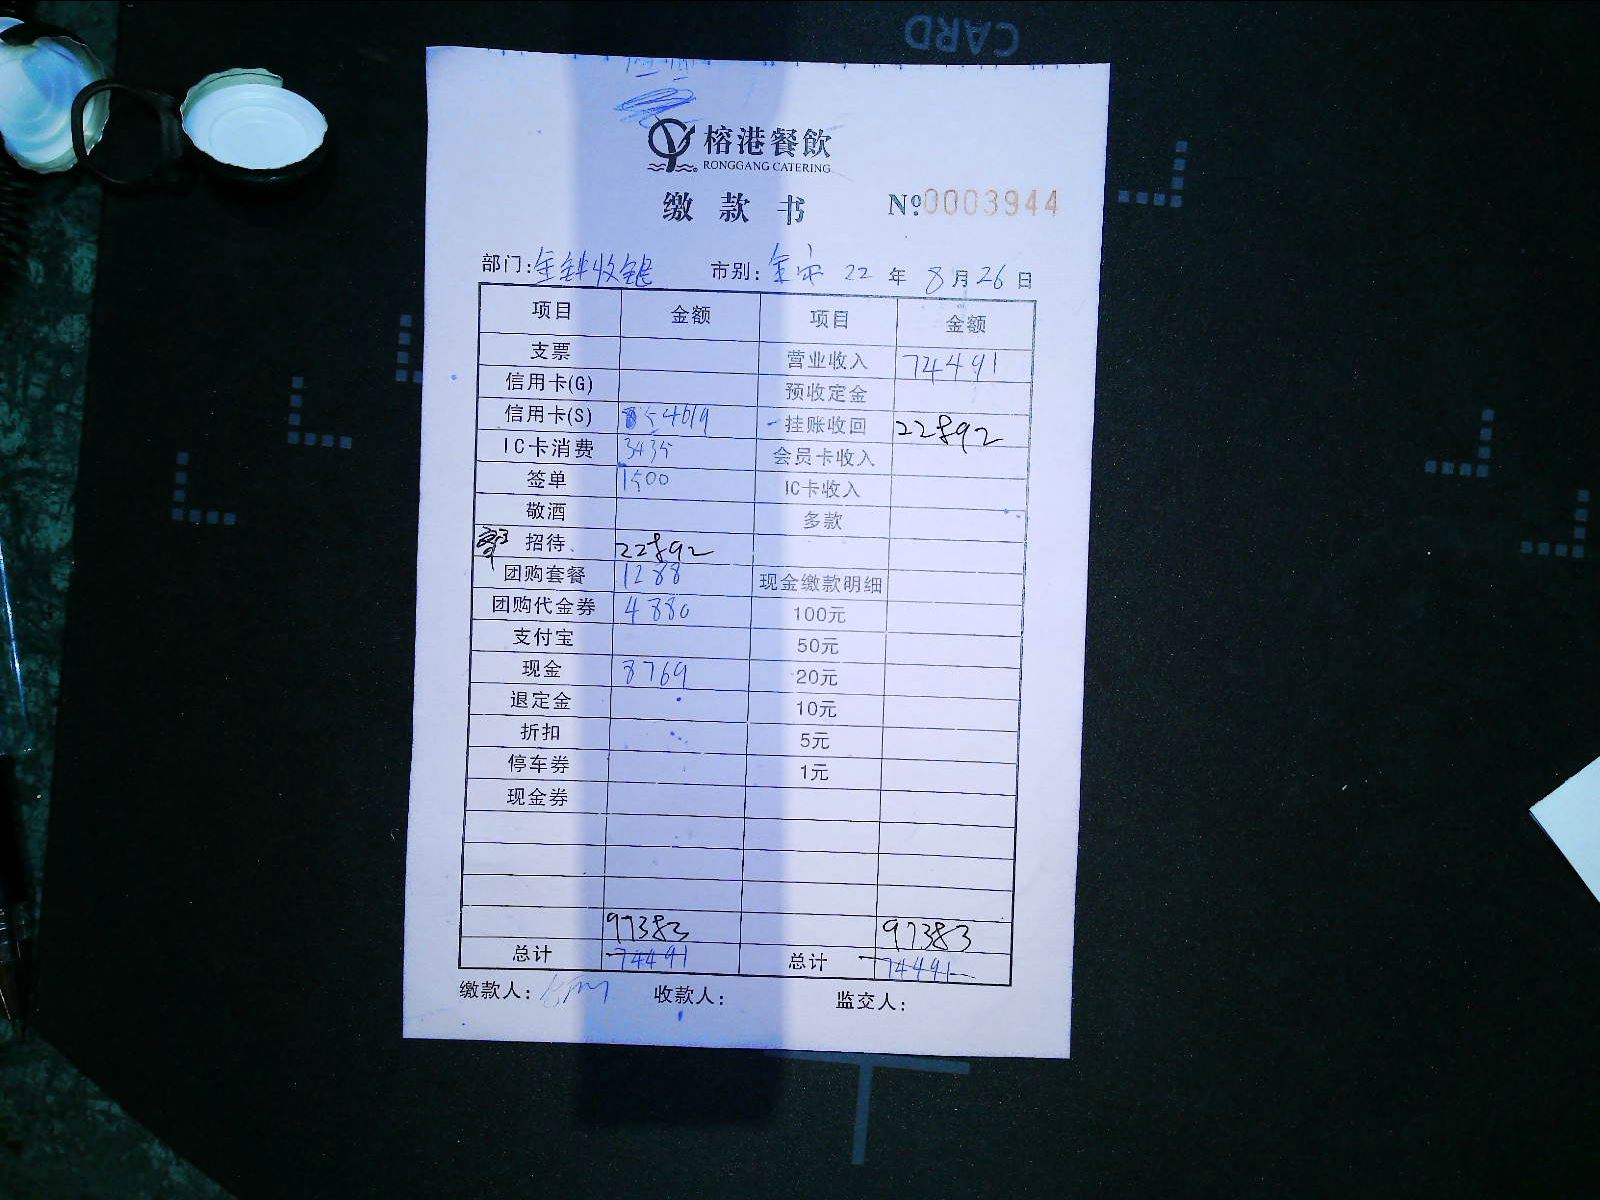 CARD
榕港餐飲
RONGGANG CATERING
缴款书 №0003944
部门:金钟收银 市别:全市 22年8月26日
项目 金额 项目 金额
支票 营业收入 74491
信用卡(G) 预收定金
信用卡(S) 54619 挂账收回 22892
IC卡消费 3435 会员卡收入
签单 1500 IC卡收入
敬酒 多款
招待 22892
团购套餐 1288 现金缴款明细
团购代金券 4880 100元
支付宝 50元
现金 8769 20元
退定金 10元
折扣 5元
停车券 1元
现金券
97383 97383
总计 74491 总计 74491
缴款人: 收款人: 监交人: